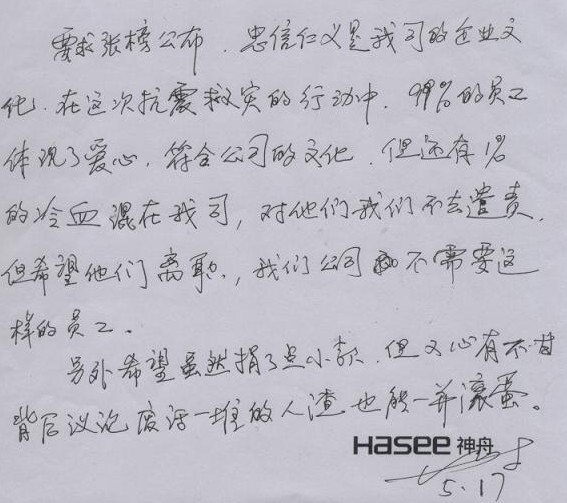 要求张榜公布，忠信仁义是我司的企业文
化，在这次抗震救灾的行动中，99%的员工
体现了爱心，符合公司的文化，但还有1%
的冷血混在我司，对他们我们不去谴责，
但希望他们离职，我们公司不需要这
样的员工。
另外希望虽然捐了点小款，但又心有不甘
背后议论废话一堆的人渣也能一并滚蛋。
Hasee 神舟
5.17